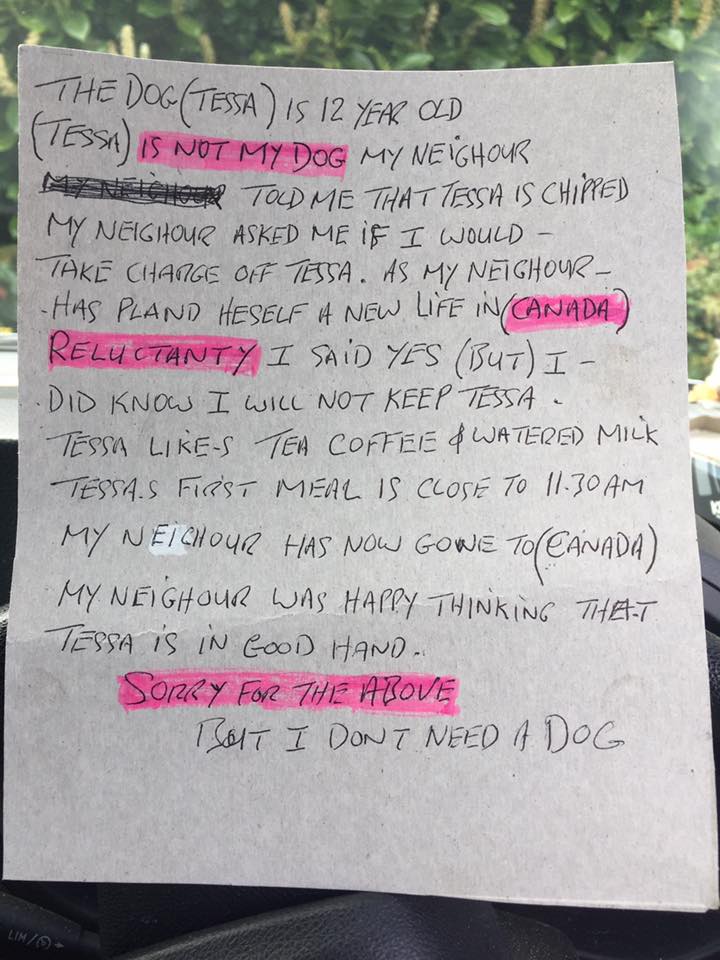 THE DOG (TESSA) IS 12 YEAR OLD
(TESSA) IS NOT MY DOG MY NEIGHOUR
MY NEIGHOUR TOLD ME THAT TESSA IS CHIPPED
MY NEIGHOUR ASKED ME IF I WOULD -
TAKE CHARGE OFF TESSA. AS MY NEIGHOUR -
- HAS PLAND HESELF A NEW LIFE IN (CANADA)
RELUCTANTY I SAID YES (BUT) I -
- DID KNOW I WILL NOT KEEP TESSA.
TESSA LIKE-S TEA COFFEE & WATERED MILK
TESSA.S FIRST MEAL IS CLOSE TO 11.30 AM
MY NEIGHOUR HAS NOW GONE TO (CANADA)
MY NEIGHOUR WAS HAPPY THINKING THAT
TESSA IS IN GOOD HAND.
SORRY FOR THE ABOVE
BUT I DONT NEED A DOG
LIM/